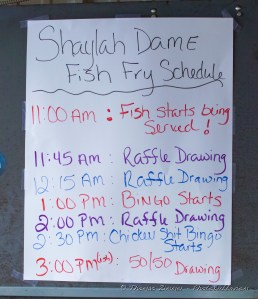 Shaylah Dame
Fish Fry Schedule
11:00 Am : Fish starts being
Served!
11:45 Am : Raffle Drawing
12:15 Am : Raffle Drawing
1:00 PM : Bingo Starts
2:00 PM : Raffle Drawing
2:30 PM : Chicken Shit Bingo
Starts
3:00 PM(ish) : 50/50 Drawing